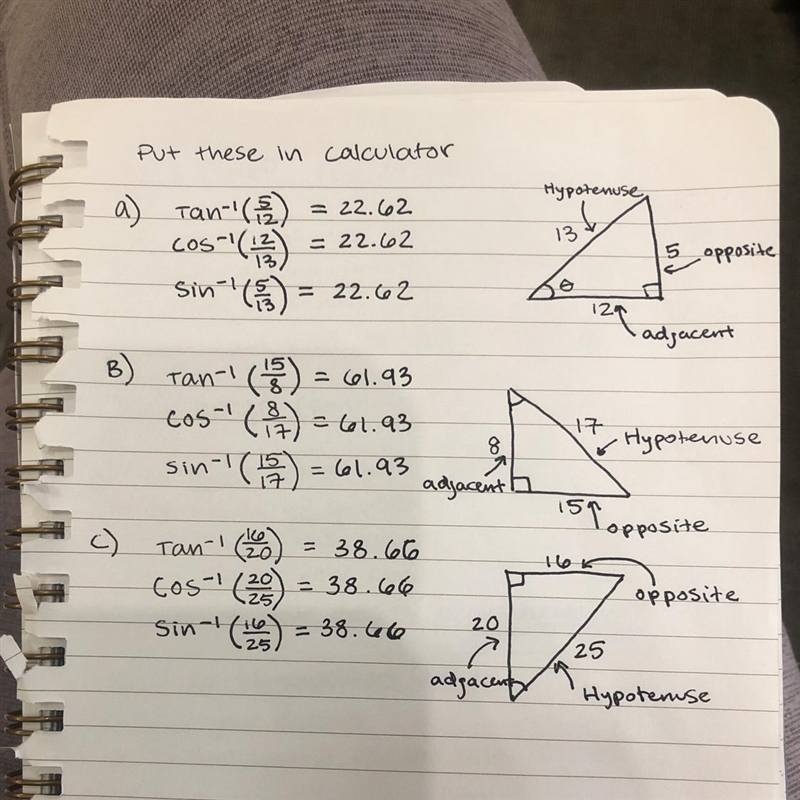 Put these in calculator
a) Tan⁻¹(5/12) = 22.62
cos⁻¹(12/13) = 22.62
sin⁻¹(5/13) = 22.62
Hypotenuse
13
5 opposite
θ
12
adjacent
B) Tan⁻¹(15/8) = 61.93
cos⁻¹(8/17) = 61.93
sin⁻¹(15/17) = 61.93
17
Hypotenuse
8
adjacent
15
opposite
C) Tan⁻¹(16/20) = 38.66
cos⁻¹(20/25) = 38.66
sin⁻¹(16/25) = 38.66
16
opposite
20
25
adjacent
Hypotenuse